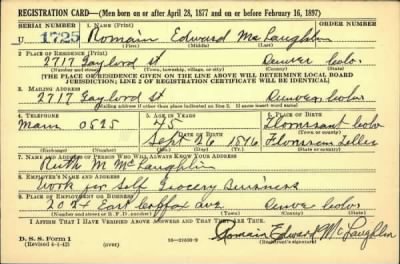 REGISTRATION CARD—(Men born on or after April 28, 1877 and on or before February 16, 1897)
SERIAL NUMBER 1. NAME (Print) ORDER NUMBER
U 1725 Romain Edward McLaughlin
(First) (Middle) (Last)
2. PLACE OF RESIDENCE (Print)
2717 Gaylord St Denver Colo.
(Number and street) (Town, township, village, or city) (County) (State)
[THE PLACE OF RESIDENCE GIVEN ON THE LINE ABOVE WILL DETERMINE LOCAL BOARD
JURISDICTION; LINE 2 OF REGISTRATION CERTIFICATE WILL BE IDENTICAL]
3. MAILING ADDRESS
2717 Gaylord St Denver Colo
(Mailing address if other than place indicated on line 2. If same insert word same)
4. TELEPHONE 5. AGE IN YEARS 6. PLACE OF BIRTH
Main 0525 45 Florissant Colo
DATE OF BIRTH (Town or county)
Sept 26 1896 Teller
(Exchange) (Number) (Mo.) (Day) (Yr.) (State or country)
7. NAME AND ADDRESS OF PERSON WHO WILL ALWAYS KNOW YOUR ADDRESS
Ruth M McLaughlin
8. EMPLOYER'S NAME AND ADDRESS
Work for Self Grocery Business
9. PLACE OF EMPLOYMENT OR BUSINESS
East Colfax Ave Denver Colo.
(Number and street or R. F. D. number) (Town) (County) (State)
I AFFIRM THAT I HAVE VERIFIED ABOVE ANSWERS AND THAT THEY ARE TRUE.
Romain Edward McLaughlin
D. S. S. Form 1
(Revised 4-1-42) (over) (Registrant's signature)